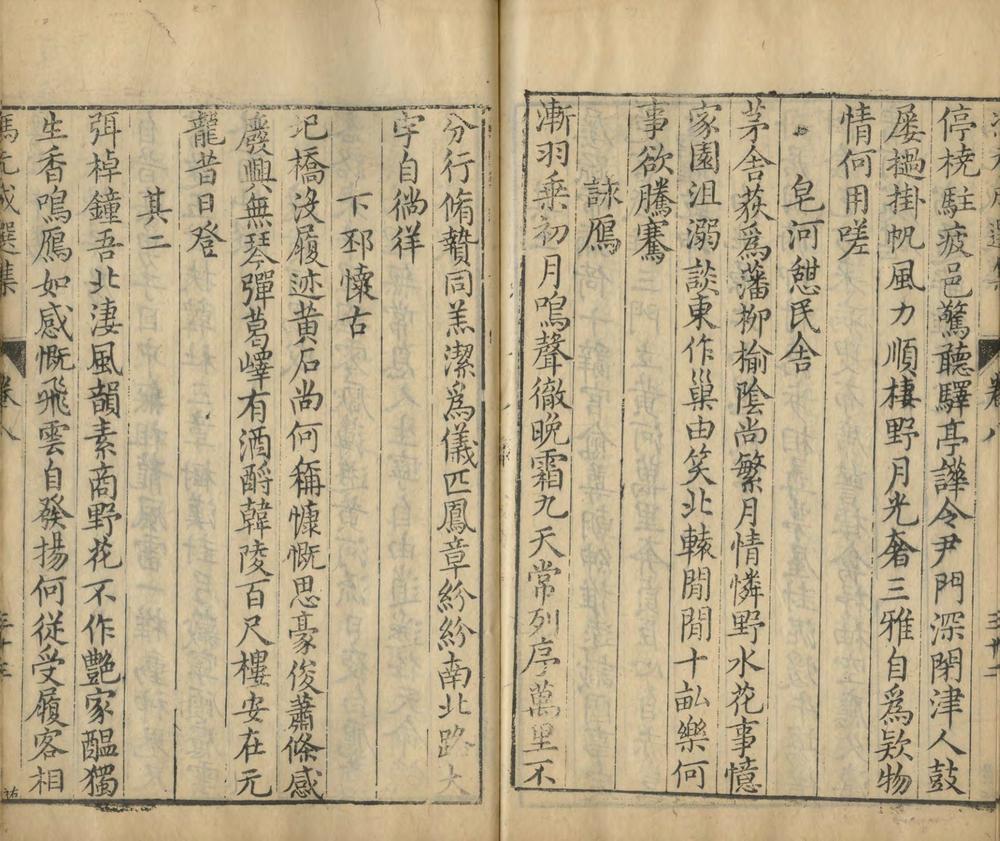 停橈駐疲邑驚聽驛亭譁令尹門深閉津人鼓
屡撾掛帆風力順棲野月光奢三雅自爲欵物
情何用嗟
皂河憇民舍
茅舍荻爲藩柳榆陰尚繁月情憐野水花事憶
家園沮溺談東作巢由笑北轅閒閒十畝樂何
事欲騰騫
詠鴈
漸羽乗初月鳴聲徹晚霜九天常列序萬里不
分行脩贄同羔潔爲儀匹鳳章紛紛南北路大
字自徜徉
下邳懷古
圯橋没履迹黄石尚何稱慷慨思豪俊蕭條感
廢興無琴彈葛嶧有酒酹韓陵百尺樓安在元
龍昔日登
其二
弭棹鐘吾北淒風韻素商野花不作艷家醖獨
生香鳴鴈如感慨飛雲自發揚何從受履客相
馮元成選集
卷八